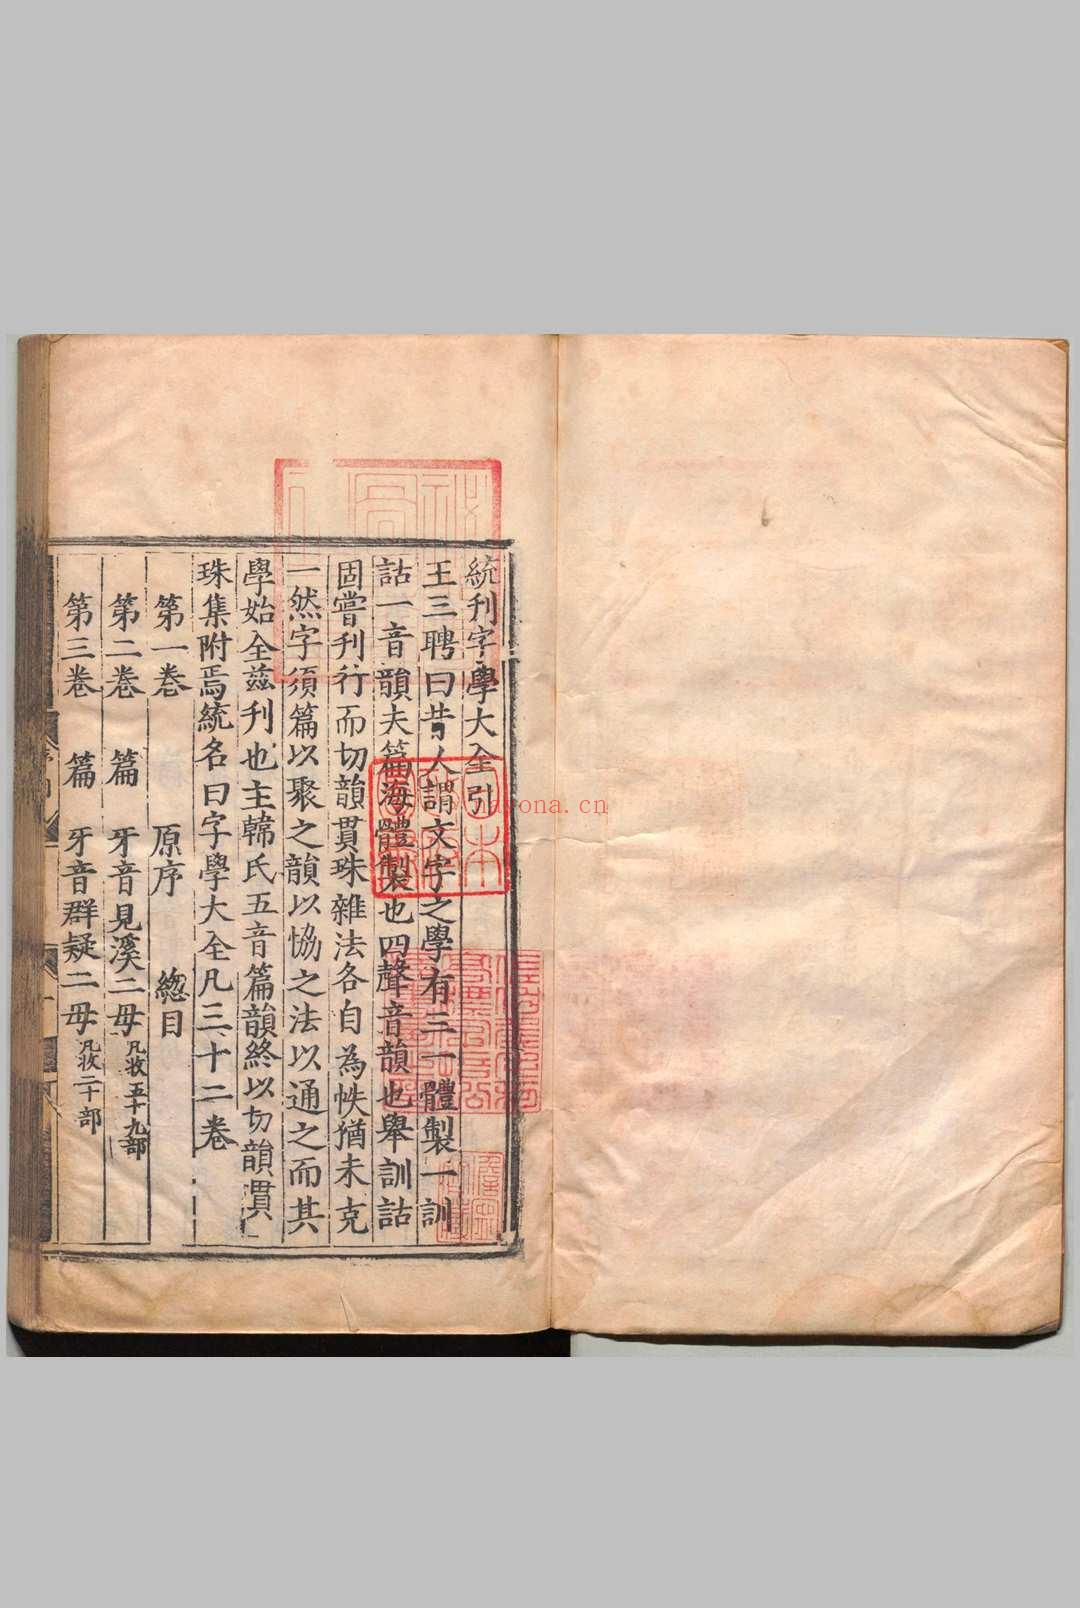 統刊字學大全引
王三聘曰昔人謂文字之學有三一體製一訓
詁一音韻夫篇海體製也四聲音韻也舉訓詁
固嘗刊行而切韻貫珠雜法各自為帙猶未克
一然字須篇以聚之韻以恊之法以通之而其
學始全茲刊也主韓氏五音篇韻終以切韻貫
珠集附焉統名曰字學大全凡三十二卷
第一卷 原序 緫目
第二卷 篇 牙音見溪二母凡收五十九部
第三卷 篇 牙音群疑二母凡收二十部
nayona.cn